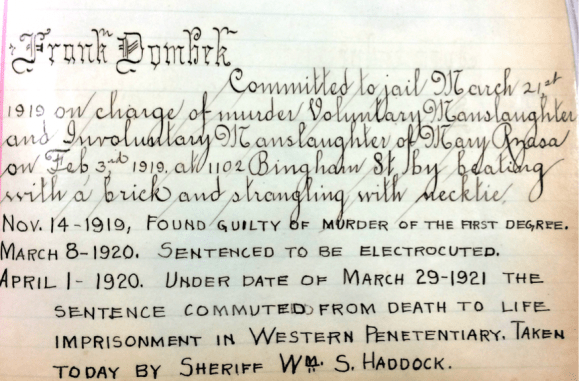 Frank Dombek
Committed to jail March 21,st
1919 on charge of murder Voluntary Manslaughter
and Involuntary Manslaughter of Mary
on Feb 3rd 1919, at 1102 Bingham St, by beating
with a brick and strangling with necktie.
NOV. 14-1919, FOUND GUILTY OF MURDER OF THE FIRST DEGREE.
MARCH 8-1920. SENTENCED TO BE ELECTROCUTED.
APRIL 1- 1920. UNDER DATE OF MARCH 29-1921 THE
SENTENCE COMMUTED FROM DEATH TO LIFE
IMPRISONMENT IN WESTERN PENETENTIARY. TAKEN
TODAY BY SHERIFF WM. S. HADDOCK.